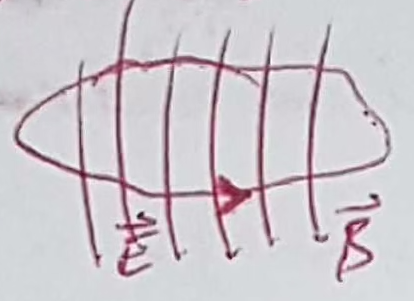 $\vec{E}$ $\vec{B}$